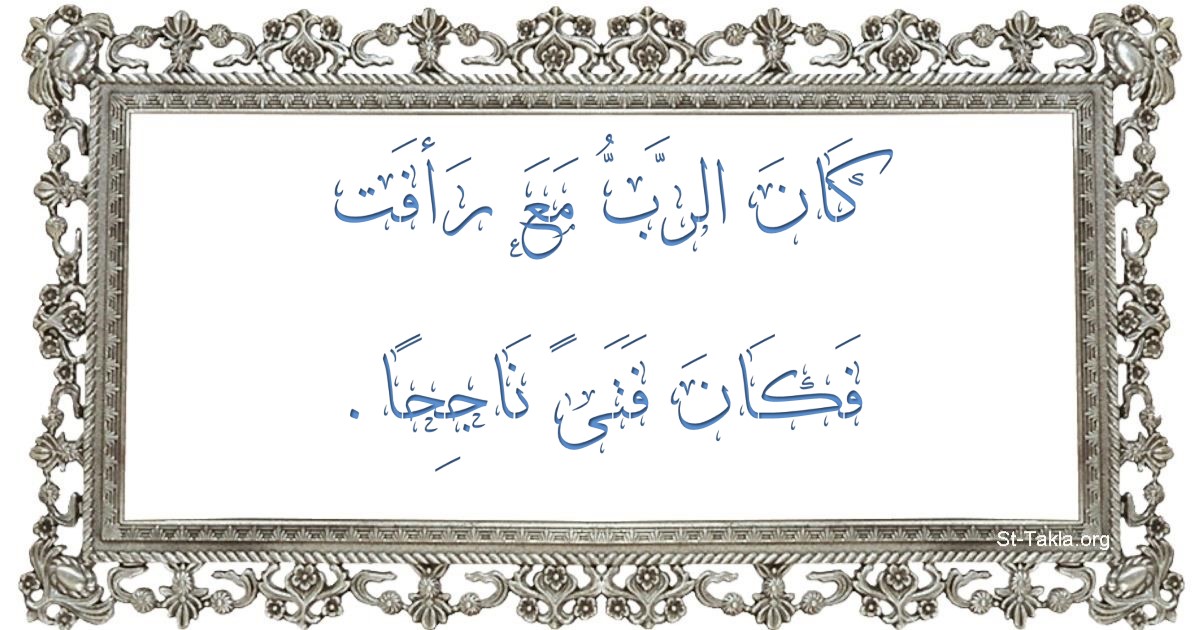 كَانَ الرَّبُّ مَعَ رَأفَت
فَكَانَ فَتَىً نَاجِحًا .
St-Takla.org